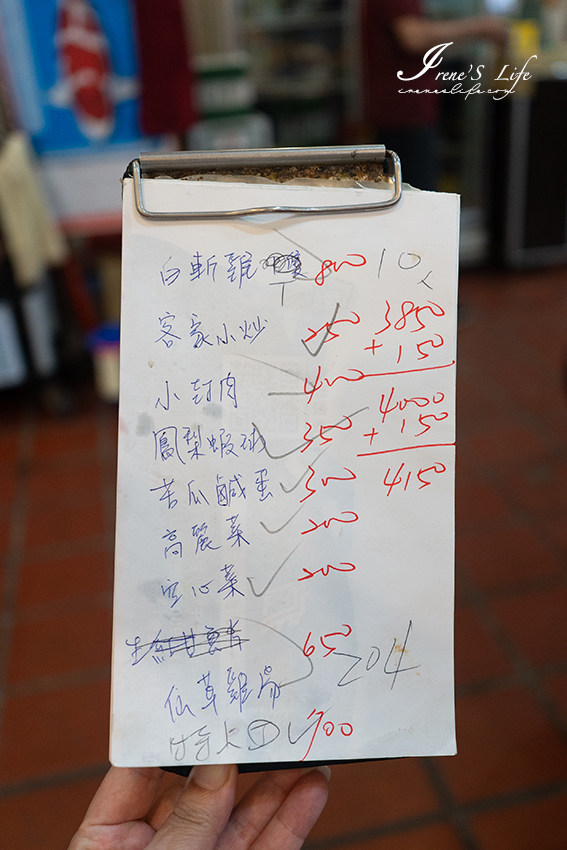 Irene'S Life
ireneslife.com
白斬雞 800 10人
客家小炒 250
3850
+ 150
小封肉 400
4000
鳳梨蝦球 350
+ 150
苦瓜鹹蛋 300
4150
高麗菜 200
空心菜 200
650
仙草雞湯 204
700